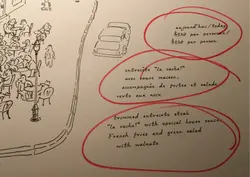 aujourd'hui/today
$250 par personne/
$250 per person
entrecôte "la vache!"
avec sauce maison,
accompagnée de frites et salade
verte aux noix
Broiled entrecote steak
"la vache!" with special house sauce,
French fries and green salad
with walnuts